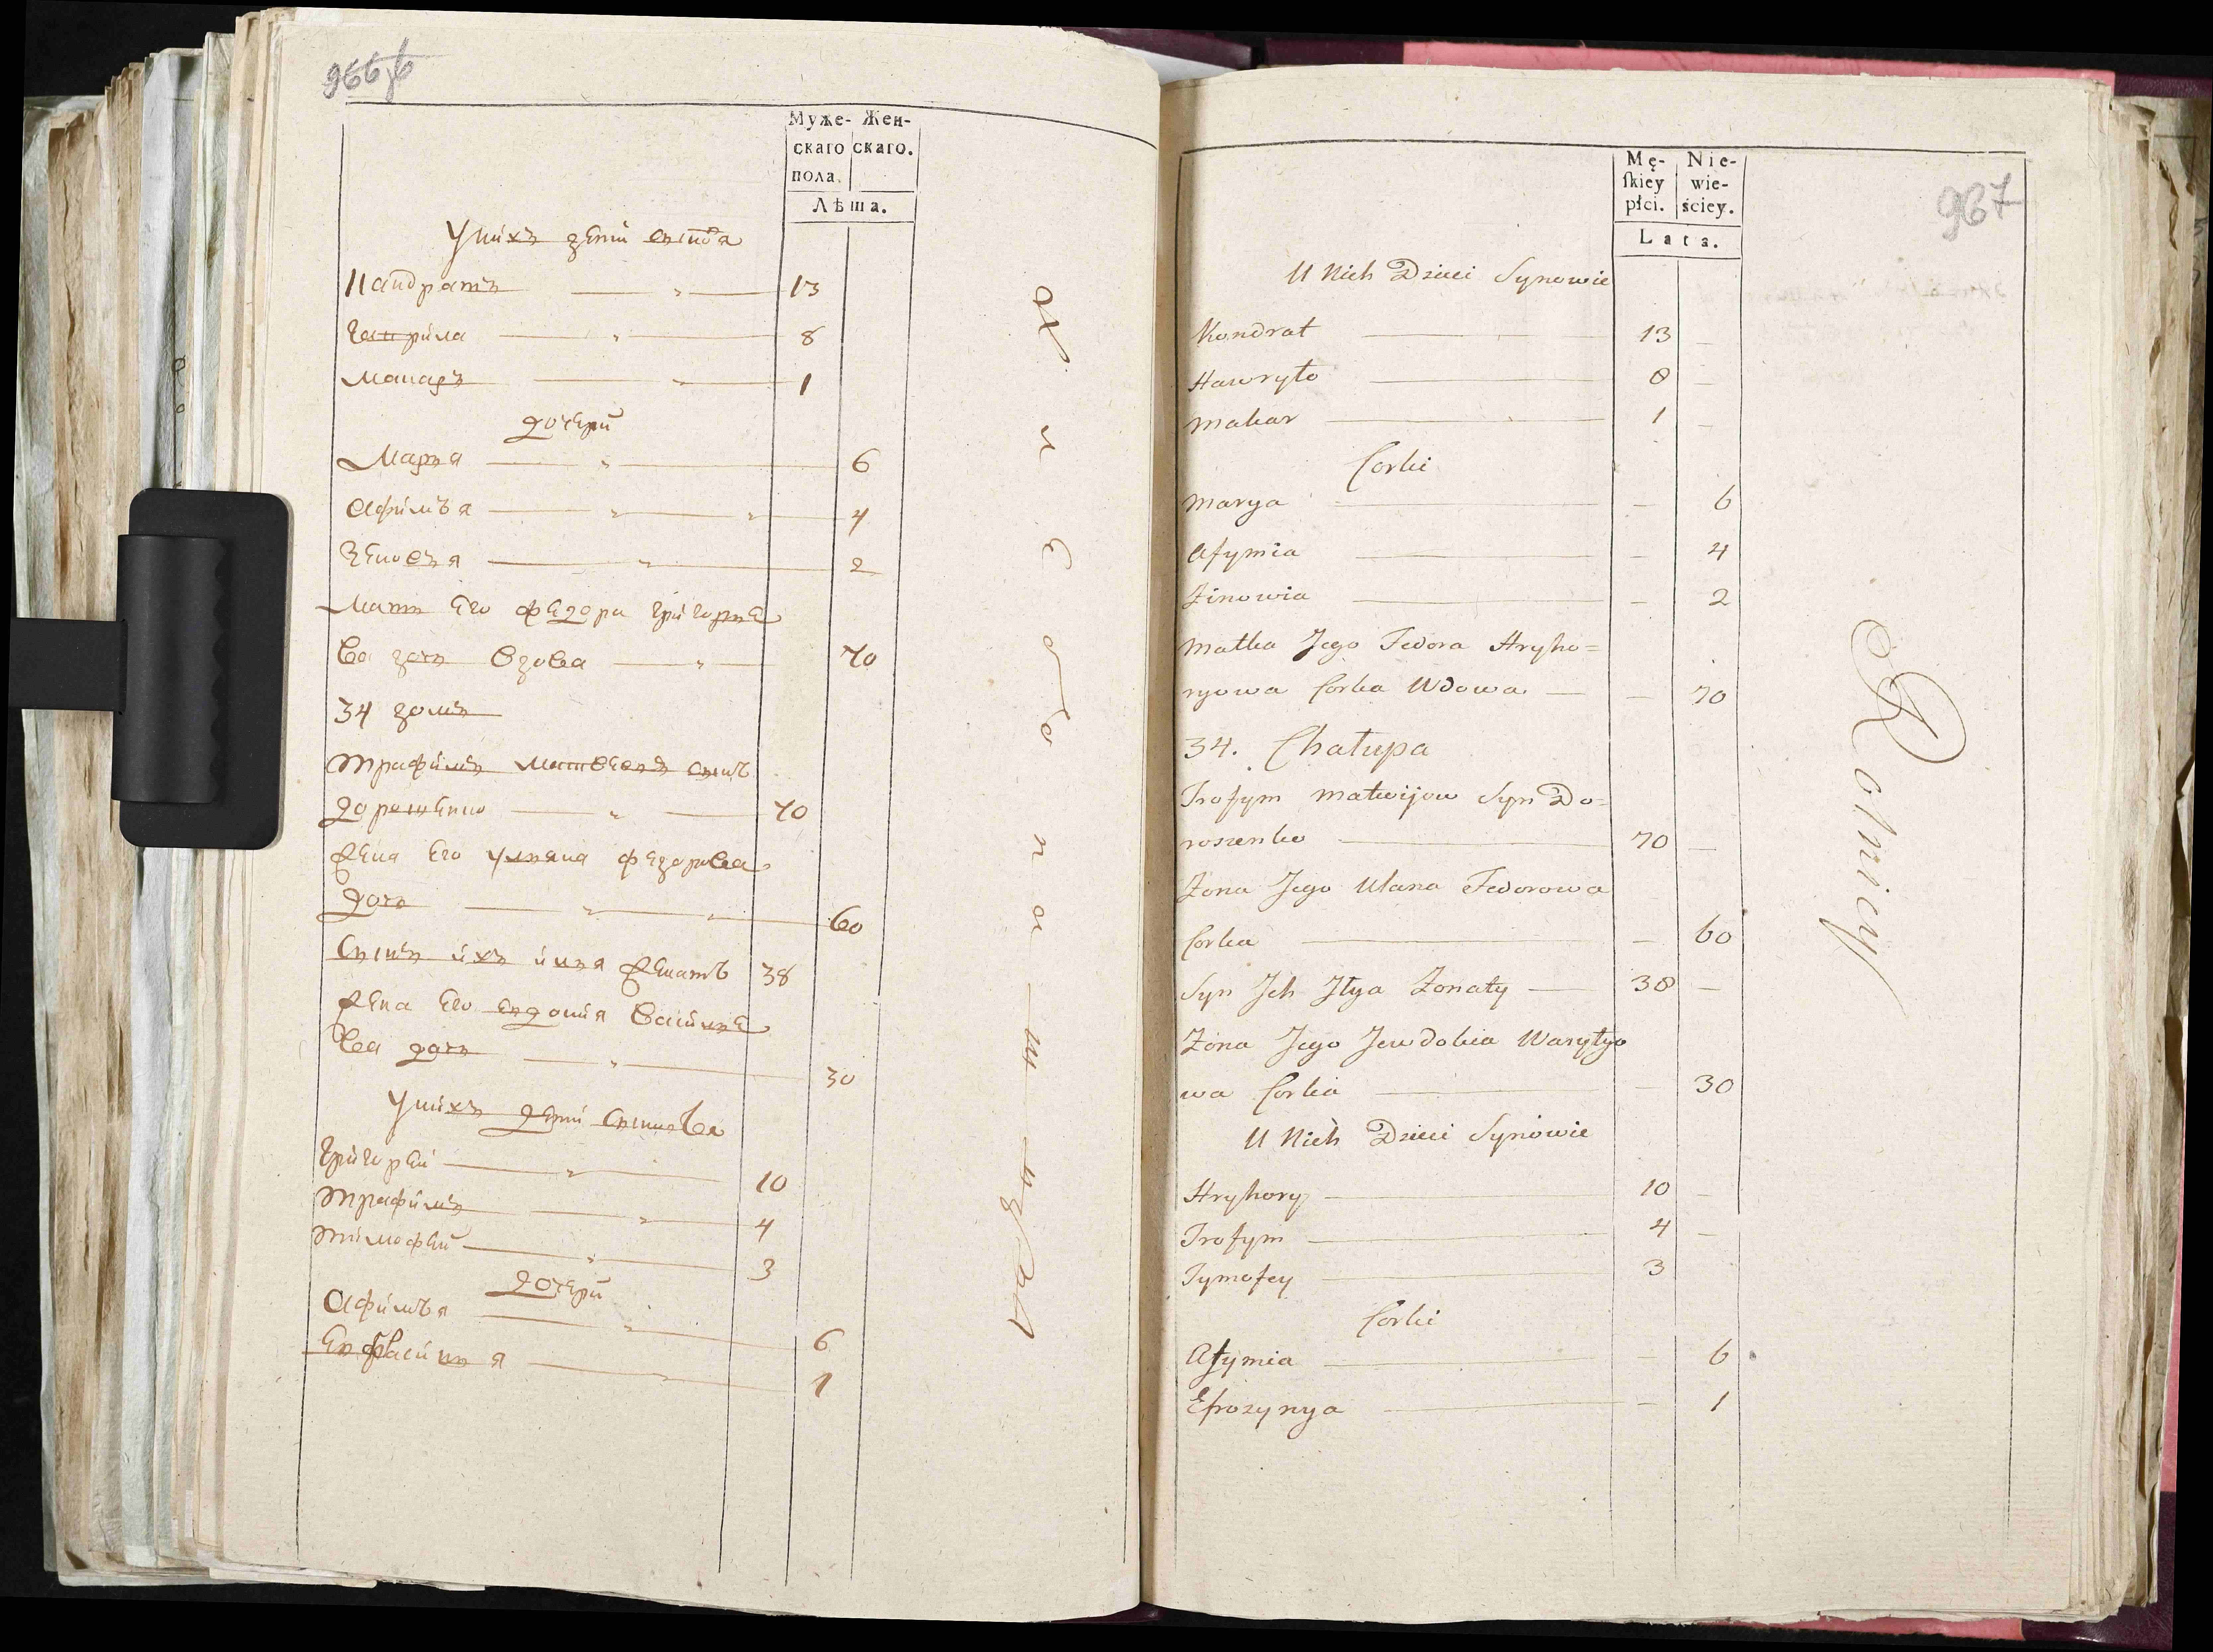 966
Муже- Жен-
скаго скаго.
пола.
Лѣта.
Унихъ дети сынова
Кандратъ 13
Гаврила 8
Макаръ 1
дочери
Марья 6
Афимъя 4
Зеновъя 2
Мать Его федора григорье
ва дочь вдова 70
34 домъ
Трафимъ Матвеевъ сынъ
дорошенко 70
жена Его ульяна федорова
дочь 60
Сынъ ихъ илья женатъ 38
жена Его евдокия василье
ва дочь 30
Унихъ дети сынова
григорей 10
Трафимъ 4
Тимофей 3
дочери
Афимъя 6
1
967
Mę- Nie-
skiey wie-
płci. ściey.
Lata.
U Nich Dzieci Synowie
Kondrat 13
Hawryło 8
Makar 1
Corki
Marya 6
Afymia 4
Zinowia 2
Matka Jego Fedora Hryho=
ryowa Corka Wdowa 70
34. Chałupa
Trofym Matwijow Syn Do=
roszenko 70
Zona Jego Ulana Fedorowa
Corka 60
Syn Jch Jłya Zonaty 38
Zona Jego Jewdokia Wasylyo
wa Corka 30
U Nich Dzieci Synowie
Hryhory 10
Trofym 4
Tymofey 3
Corki
Afymia 6
Efrozynya 1
Rolnicy